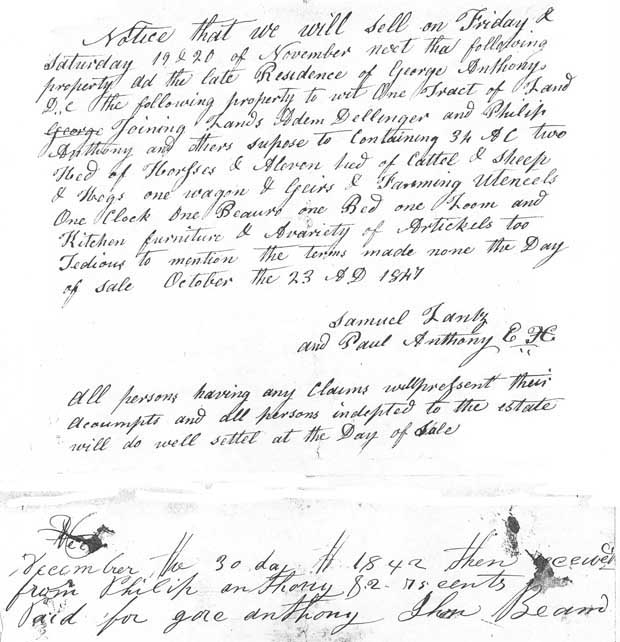 Notice that we will sell on Friday &
Saturday 19 & 20 of November next tha following
property ad the late Residence of George Anthony
D,,C the following property to wit One Tract of Land
George Joining Lands Adem Dellinger and Philip
Anthony and others supose to Containing 34 AC two
Hed of Horfses & Aleven hed of Cattel & Sheep
& Hogs one wagon & Geirs & Farming Utencels
One Clock One Beauro one Bed one Loom and
Kitchen furniture & Avariety of Artickels too
Tedious to mention the terms made none the Day
of Sale October the 23 AD 1847
Samuel Lantz
and Paul Anthony E
All persons having any Claims will pressent their
Acoumpts and all persons indepted to the estate
will do well settel at the Day of Sale
December the 30 day 1842 then received
from Philip anthony 82 75 cents
Paid for gore anthony John Beard